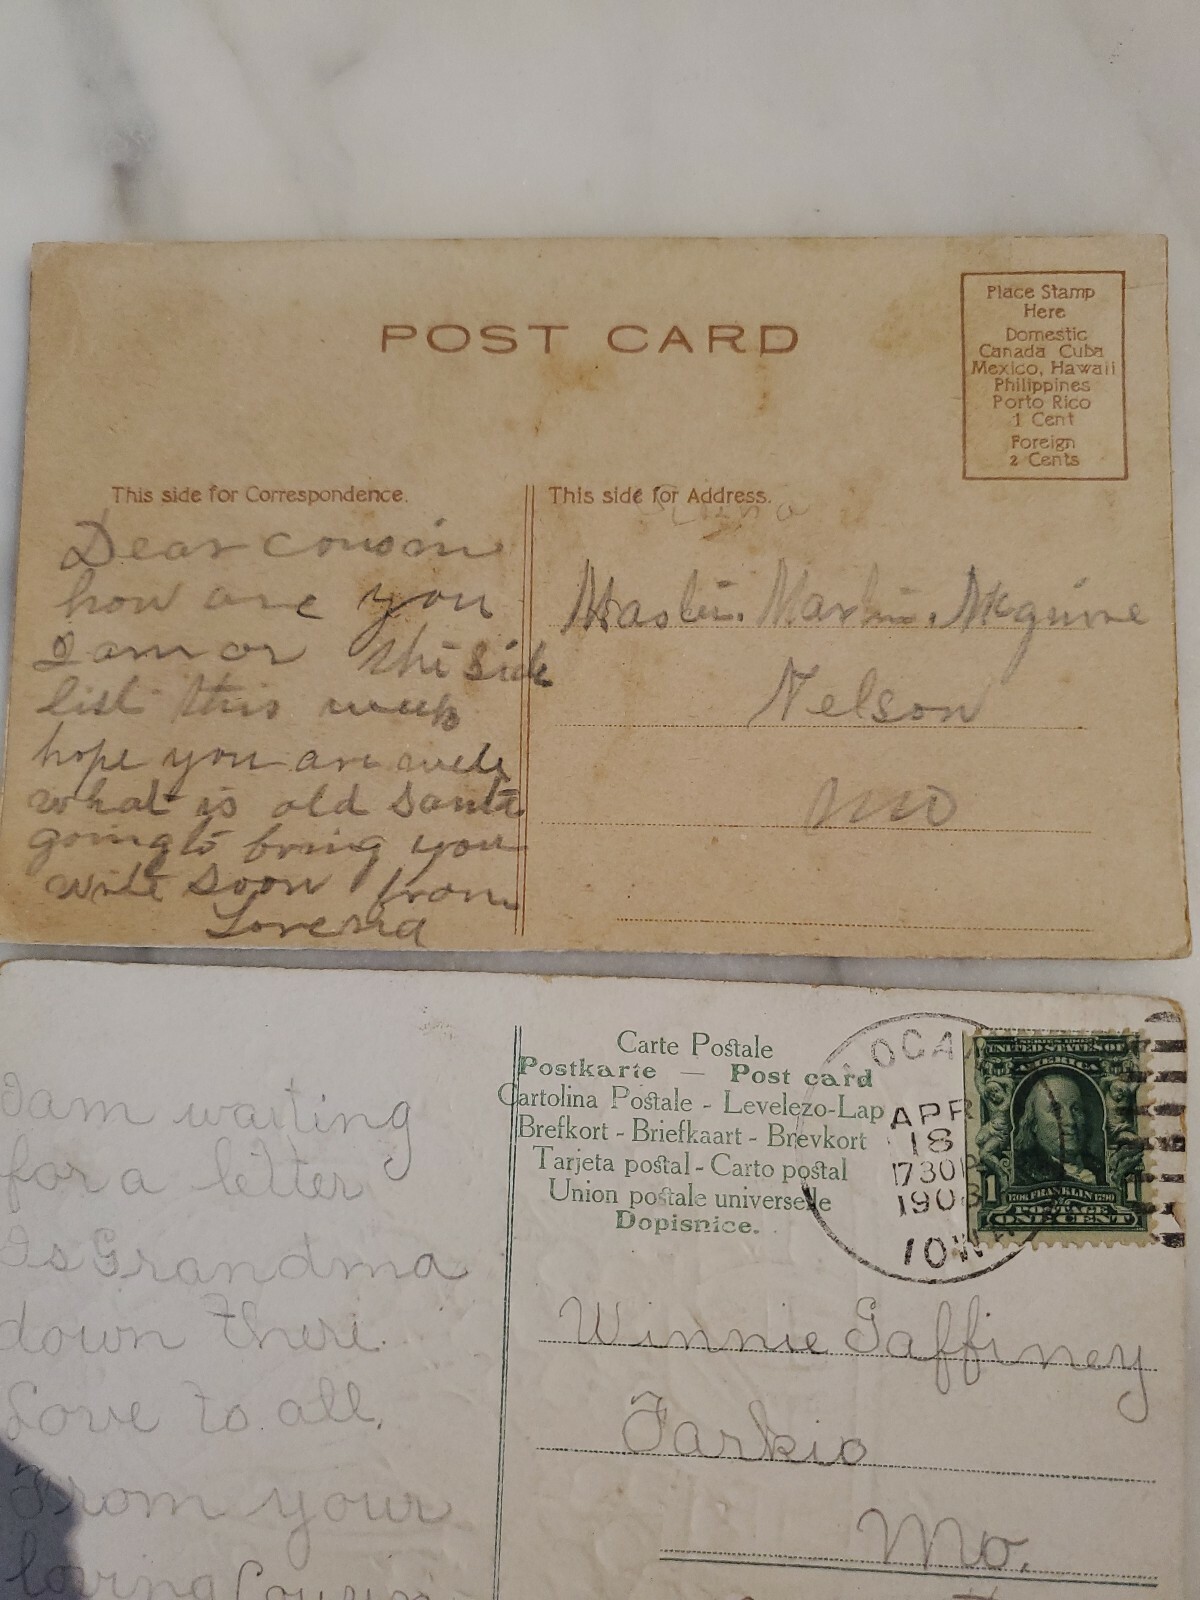 POST CARD
Place Stamp
Here
Domestic
Canada Cuba
Mexico, Hawaii
Philippines
Porto Rico
1 Cent
Foreign
2 Cents
This side for Correspondence.
Dear cousin
how are you
I am or the sick
list this week
hope you are well
what is old Santa
going to bring you
write soon from
Lorena
This side for Address.
Martin. Mcguire
Nelson
Mo
I am waiting
for a letter
Is Grandma
down there.
Love to all.
From your
loving Cousin
Carte Postale
Postkarte — Post card
Cartolina Postale - Levelezo-Lap
Brefkort - Briefkaart - Brevkort
Tarjeta postal - Carto postal
Union postale universelle
Dopisnice.
OCA
APR
18
1730P
1908
IOWA
SERIES 1902
UNITED STATES OF
AMERICA
1 1706 FRANKLIN 1790 1
POSTAGE
ONE CENT
Winnie Gaffiney
Tarkio
Mo.